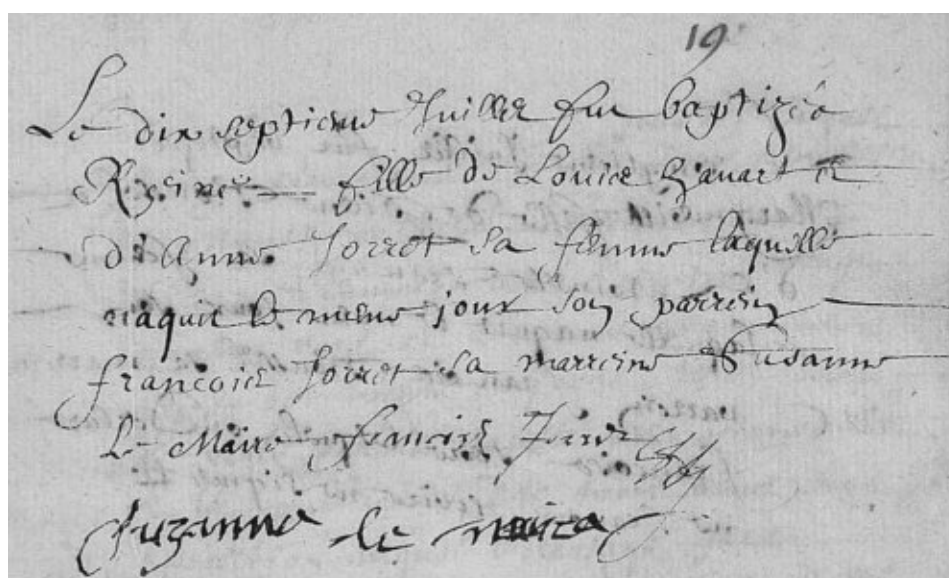 19
Le dix septieme Juillet fut baptizée
Reine fille de Louis et
d'Anne Jorret sa femme laquelle
naquit le meme jour son parrein
francois Jorret sa marreine Susanne
Le Maire francois Jorret
Suzanne le maire